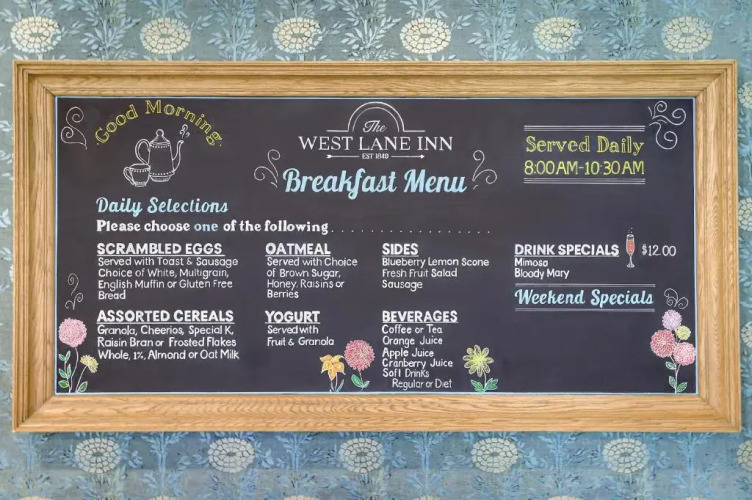 Good Morning.
The
WEST LANE INN
EST 1849
Breakfast Menu
Served Daily
8:00AM-10:30AM
Daily Selections
Please choose one of the following. . . . . . . . . . . . . . . . .
SCRAMBLED EGGS
Served with Toast & Sausage
Choice of White, Multigrain,
English Muffin or Gluten Free
Bread
OATMEAL
Served with Choice
of Brown Sugar,
Honey, Raisins or
Berries
SIDES
Blueberry Lemon Scone
Fresh Fruit Salad
Sausage
DRINK SPECIALS $12.00
Mimosa
Bloody Mary
Weekend Specials
ASSORTED CEREALS
Granola, Cheerios, Special K,
Raisin Bran or Frosted Flakes
Whole, 1%, Almond or Oat Milk
YOGURT
Served with
Fruit & Granola
BEVERAGES
Coffee or Tea
Orange Juice
Apple Juice
Cranberry Juice
Soft Drinks
Regular or Diet